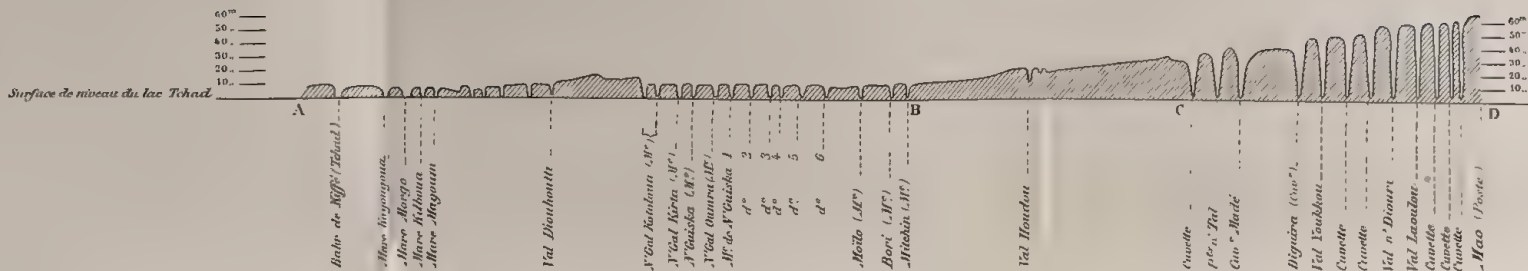 60m
50..
40..
30..
20..
10..
Surface de niveau du lac Tchad
60m
50..
40..
30..
20..
10..
A
B
C
D
Bahr de Kiffé (Tchad)
Mare Margo
Mare Kelboua
Mare Magoum
Val Diouhoulti
N'Gal Kirta (Me)
N'Guiska (Me)
N'Gal Oumra (Me)
Me de N'Guiska 1
do 2
do 3
do 4
do 5
do 6
Moïlo (Me)
Bori (Me)
Mitchin (Me)
Val Houdou
Cuvette
Cuve Madé
Diguira (Cuve)
Val Youkkou
Cuvette
Cuvette
Val n'Diouri
Val Laoulou
Cuvette
Cuvette
Cuvette
Mao (Poste)